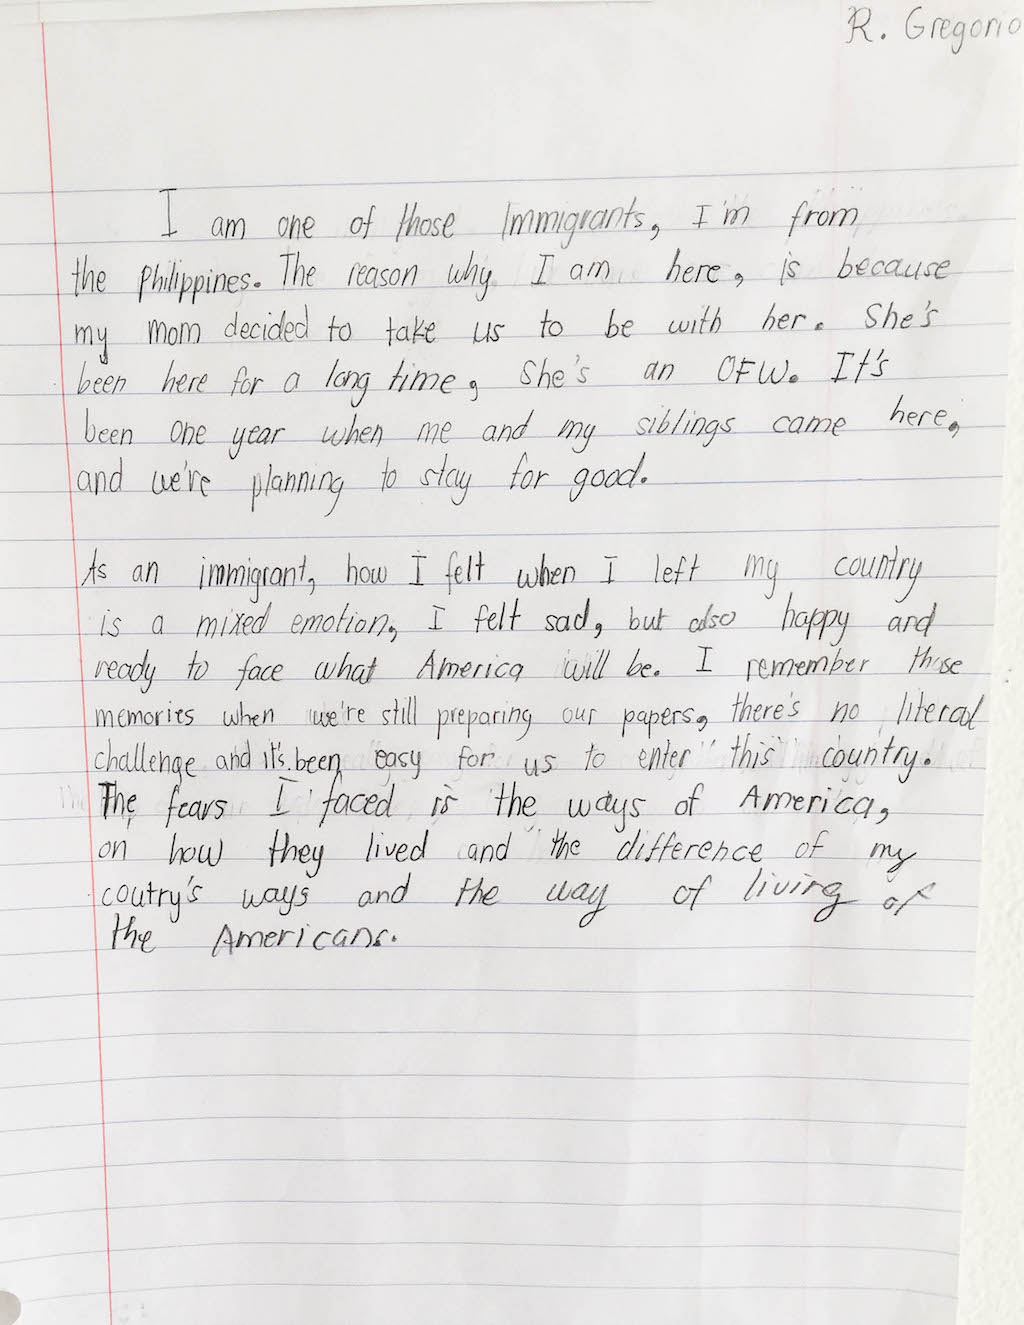 R. Gregorio
I am one of those Immigrants, I'm from
the Philippines. The reason why I am here, is because
my mom decided to take us to be with her. She's
been here for a long time, She's an OFW. It's
been one year when me and my siblings came here,
and we're planning to stay for good.
As an immigrant, how I felt when I left my country
is a mixed emotion, I felt sad, but also happy and
ready to face what America will be. I remember those
memories when we're still preparing our papers, there's no literal
challenge and it's been easy for us to enter this country.
The fears I faced is the ways of America,
on how they lived and the difference of my
coutry's ways and the way of living of
the Americans.